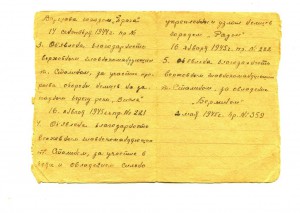 Взятие города "Прага"
14 сентября 1944г. пр. №
3. Объявлена благодарность
верховным главнокомандующим
т. Сталиным, за участие прорыва
обороны немцев на западном
берегу реки "Висла"
16 января 1945г. пр. № 221
4. Объявлена благодарность
верховным главнокомандующим
т. Сталиным, за участие в
и овладении сильно
укрепленным узлом немцев
городом "Радом"
16 января 1945г. пр. № 222
5. Объявлена благодарность
верховным главнокомандующим
т. Сталиным, за овладение
"Берлином"
2 мая 1945г. пр. № 359